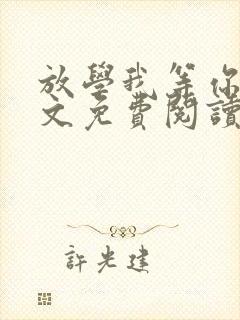 放學我等你
文免費閱讀
許光建